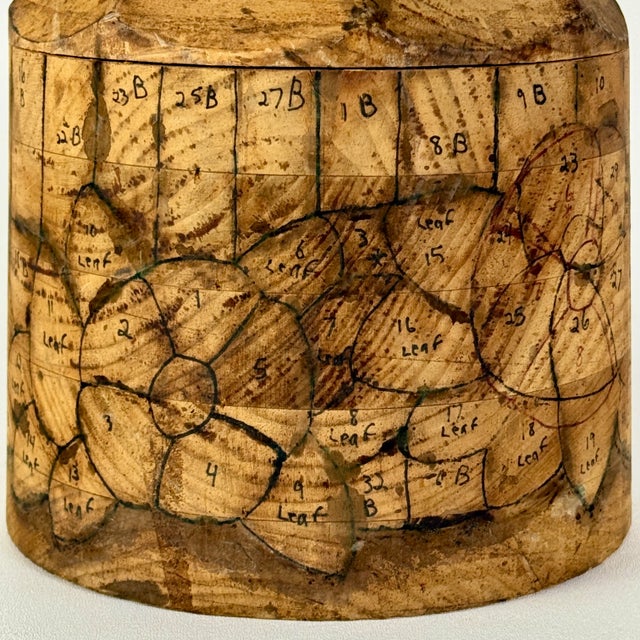 23B
25B
27B
1B
9B
10
2B
8B
23
10
Leaf
6
Leaf
3
Leaf
15
27
1
2
5
11
Leaf
7
Leaf
16
Leaf
25
26
8
3
4
8
Leaf
17
Leaf
18
Leaf
19
Leaf
14
Leaf
13
Leaf
9
Leaf
32
B